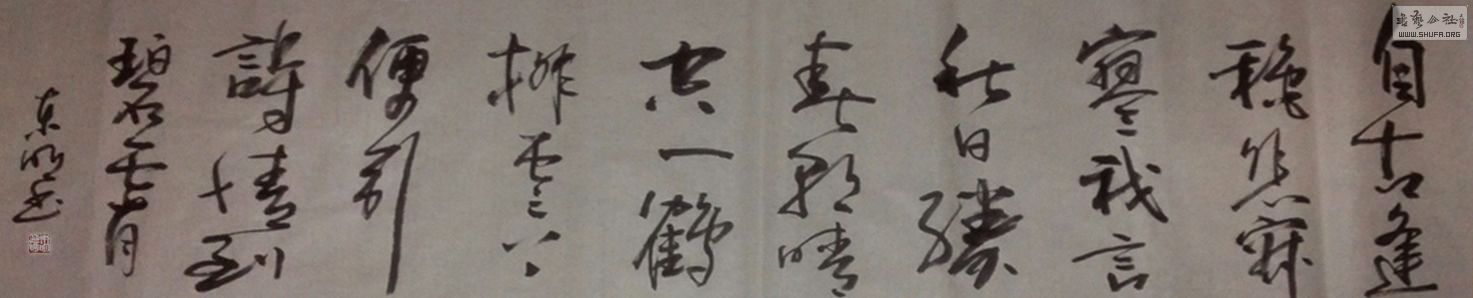 自古逢
穐悲寂
寥我言
秋日勝
春朝晴
空一鶴
排雲上
便引
詩情到
碧霄
东明书
書藝公社
WWW.SHUFA.ORG